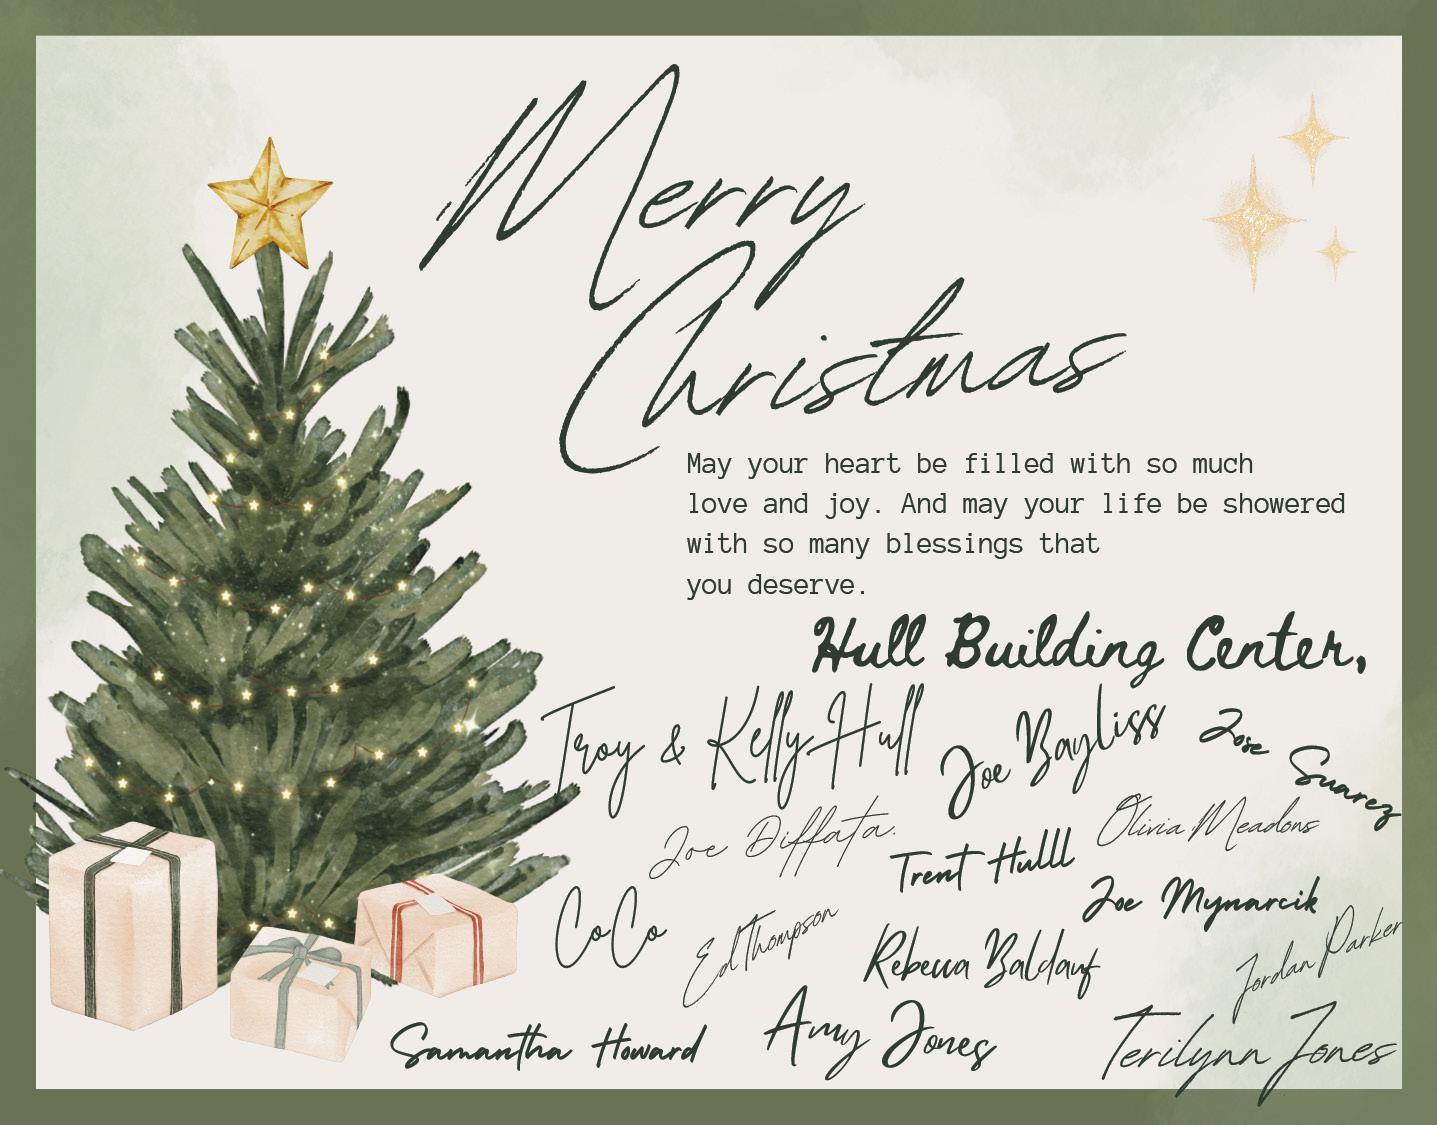 Merry
Christmas
May your heart be filled with so much
love and joy. And may your life be showered
with so many blessings that
you deserve.
Hull Building Center,
Troy & Kelly Hull
Joe Bayliss
Jose Suarez
Joe Diffata.
Trent Hulll
Olivia Meadons
CoCo
Ed Thompson
Rebecca Baldauf
Joe Mynarcik
Jordan Parker
Samantha Howard
Amy Jones
Terilynn Jones